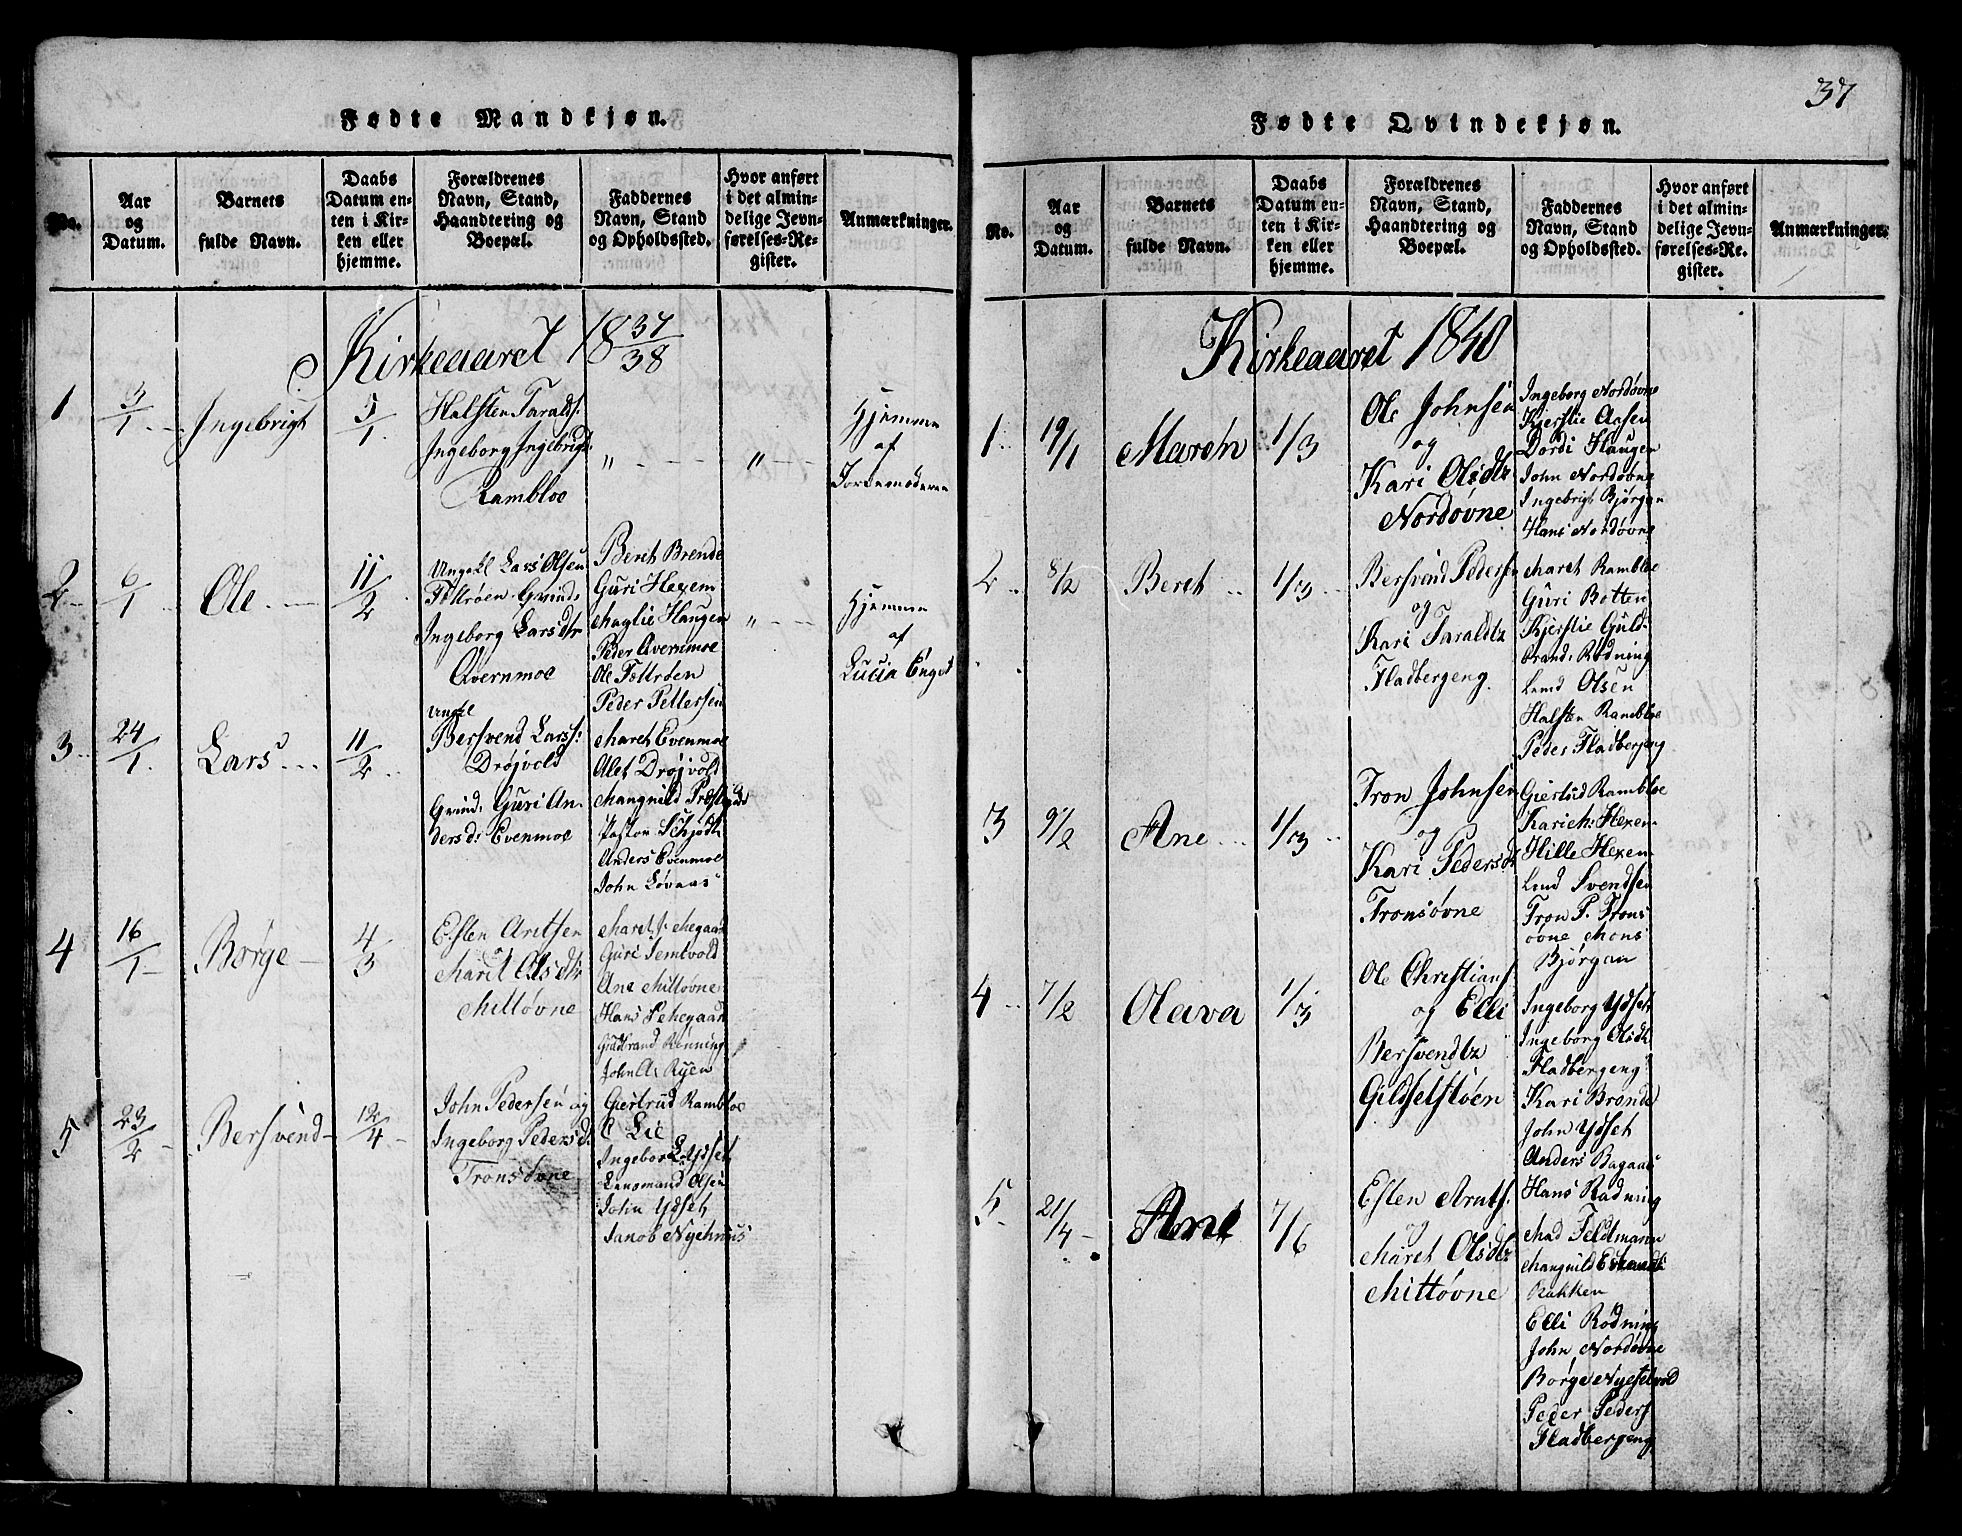 Fødte Mandkjøn.
No.
Aar
og
Datum.
Barnets
fulde Navn.
Daabs
Datum en-
ten i Kir-
ken eller
hjemme.
Forældrenes
Navn, Stand,
Haandtering og
Boepæl.
Faddernes
Navn, Stand
og Opholdssted.
Hvor anført
i det almin-
delige Jevn-
førelses-Re-
gister.
Anmærkninger.
Kirkeaaret 18 37/38
1
3/1
Ingebrigt
5/1
Halsten Taralds:
Ingeborg Ingebrigts
Rambloe
"
"
Hjemme
af
Jordemoderen
2
6/1
Ole
11/2
Ungkl Lars Olsen
Tøttrøen Qvind:
Ingeborg Larsdtr
Qvernmoe
Beret Brende
Guri Hexem
Maglie Haugen
Peder Qvernmoe
Ole Tøttrøen
Peder Pettersen
"
Hjemme
af
Lucia Enget
3
24/1
Lars
11/2
Ungkl
Bersvend Larss:
Drøjvold
Qvind: Guri An-
dersd: Evenmoe
Maret Evenmoe
Alet Drøjvold
Mangnild
Pastor Schjødt
Anders Evenmoe
John Løvaas
4
16/1
Børge
4/3
Esten Arntsen
og
Marit Olsdtr
Mittøvne
Maret
Guri Semtvold
Ane Mittøvne
Hans
Guldbrand Rønning
John A. Ryen
5
23/2
Bersvend
12/4
John Pedersen og
Ingeborg Pedersd.
Tronsøvne
Giertrud Rambloe
E Lie
Ingebor L Ydset
Lensmand Olsen
John Ydset
Janob
37
Fødte Qvindekjøn.
No.
Aar
og
Datum.
Barnets
fulde Navn.
Daabs
Datum en-
ten i Kir-
ken eller
hjemme.
Forældrenes
Navn, Stand,
Haandtering og
Boepæl.
Faddernes
Navn, Stand
og Opholdssted.
Hvor anført
i det almin-
delige Jevn-
førelses-Re-
gister.
Anmærkninger.
Kirkeaaret 1840
1
19/1
Maren
1/3
Ole Johnsen
og
Kari Olsdtr
Nordøvne
Ingeborg Nordøvne
Kjerstie Aasen
Dordi Haugen
John Nordøvne
Ingebrigt Bjørgan
Hans Nordøvne
2
8/2
Beret
1/3
Bersvend Peders
og
Kari Taraldtr
Fladbergeng
Maret Rambloe
Guri Botten
Kjerstie Guld-
brands Rødning
Lemd Olsen
Halsten Rambloe
Peder Fladbergeng
3
9/2
Ane
1/3
Tron Johnsen
og
Kari Pedersdt
Tronsøvne
Giertud Rambloe
Hexem
Hille Hexem
Lend Svendsen
Tron P. Trons
øvne Mons
Bjørgan
4
7/2
Olava
1/3
Ole Christians
og Elli
Bersvendtr
Gildselstøen
Ingeborg Ydset
Ingeborg Olsdtr
Fladbergeng
Kari Brende
John Ydset
Anders Bagaas
5
21/4
Ane
7/6
Esten Arnts.
og
Maret Olsdtr
Mittøvne
Hans Rødning
Mad Feldtmann
Mangnild
Bakken
Elli Rødning
John Nordøvne
Børge
Peder Peders
Fladbergeng